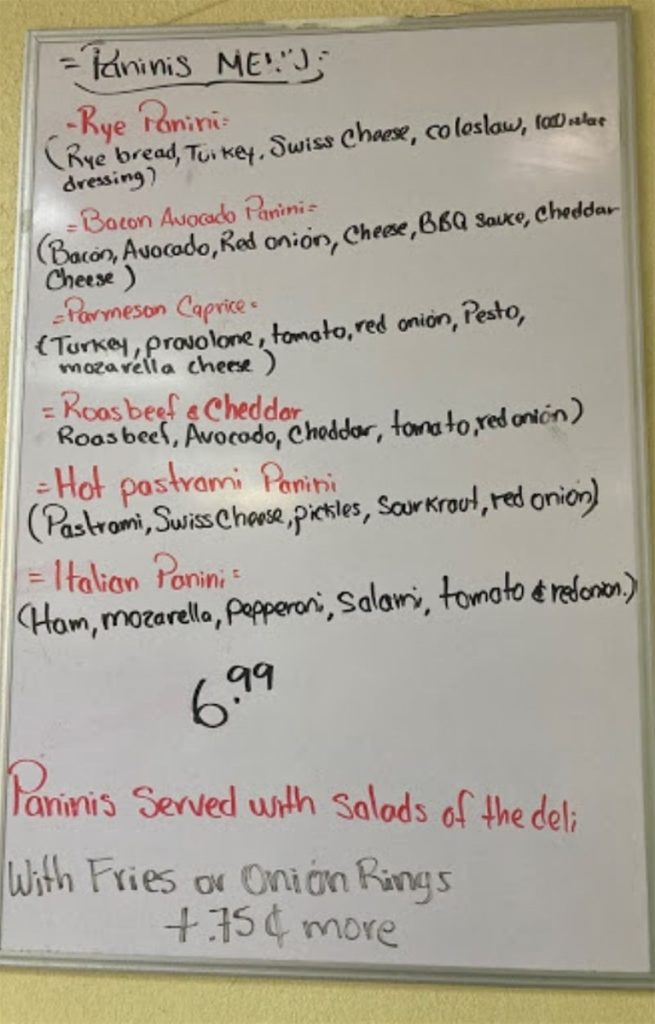 = Paninis MENU:
=Rye Panini=
(Rye bread, Turkey, Swiss Cheese, coleslaw, 1000 islae
dressing)
=Bacon Avocado Panini=
(Bacon, Avocado, Red onion, Cheese, BBQ sauce, Cheddar
Cheese)
=Parmeson Caprice=
(Turkey, provolone, tomato, red onion, Pesto,
mozarella cheese)
= Roasbeef & Cheddar
Roasbeef, Avocado, Cheddar, tomato, red onion)
=Hot pastrami Panini
(Pastrami, Swiss Cheese, pickles, Sourkraut, red onion)
= Italian Panini=
(Ham, mozarella, Pepperoni, Salami, tomato & red onion.)
6.99
Paninis Served with Salads of the deli
With Fries or Onion Rings
+.75¢ more